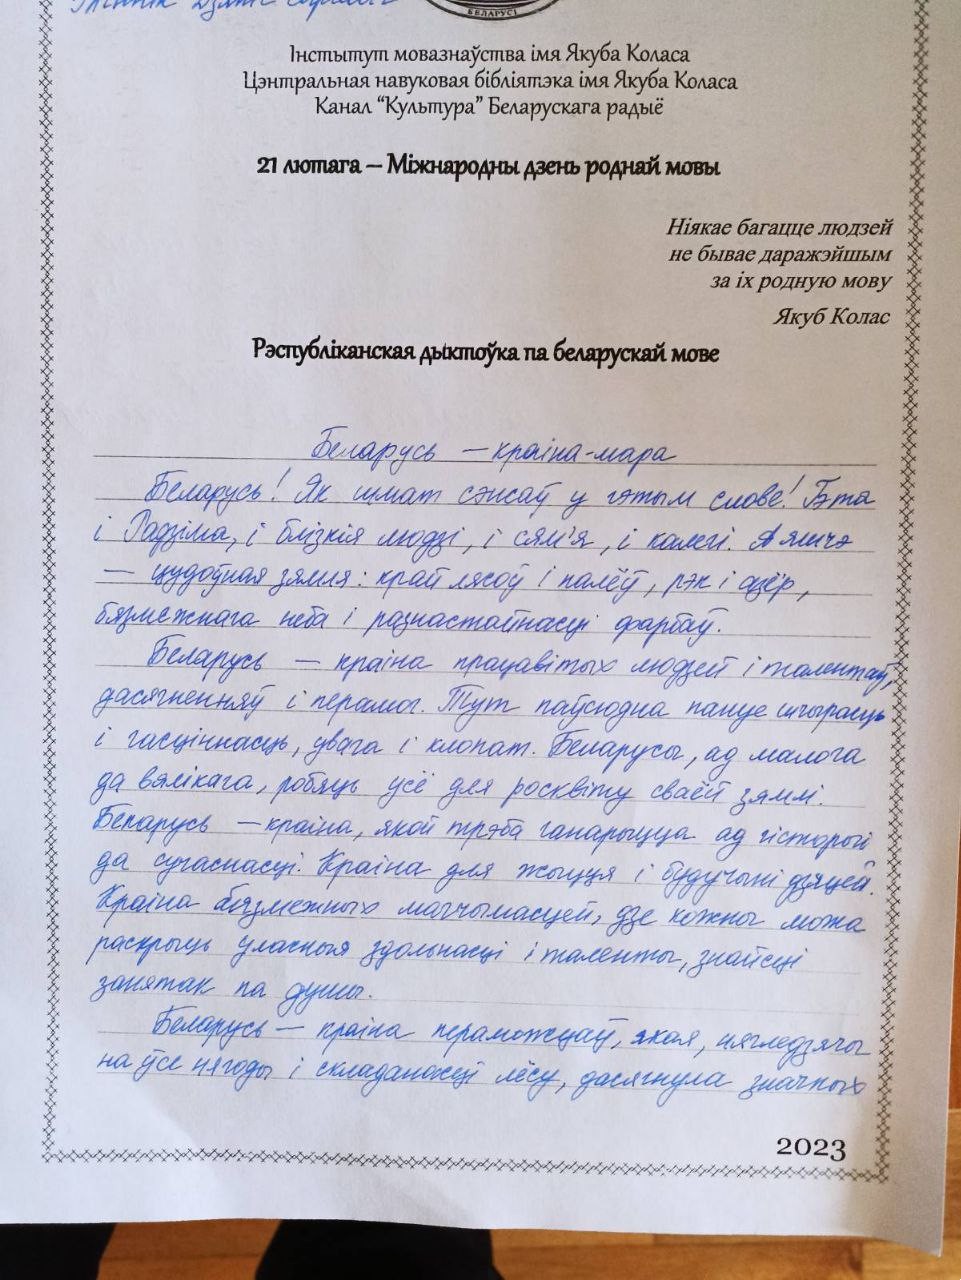 БЕЛАРУСІ
Інстытут мовазнаўства імя Якуба Коласа
Цэнтральная навуковая бібліятэка імя Якуба Коласа
Канал “Культура” Беларускага радыё
21 лютага – Міжнародны дзень роднай мовы
Ніякае багацце людзей
не бывае даражэйшым
за іх родную мову
Якуб Колас
Рэспубліканская дыктоўка па беларускай мове
Беларусь – краіна-мара
Беларусь! Як шмат сэнсаў у гэтым слове! Гэта
і Радзіма, і блізкія людзі, і сям'я, і калегі. А яшчэ
– цудоўная зямля: край лясоў і палёў, рэк і азёр,
бязмежнага неба і разнастайнасці фарбаў.
Беларусь – краіна працавітых людзей і талентаў,
дасягненняў і перамог. Тут паўсюдна пануе шчырасць
і гасціннасць, увага і клопат. Беларусы, ад малога
да вялікага, робяць усё для росквіту сваёй зямлі.
Беларусь – краіна, якой трэба ганарыцца ад гісторыі
да сучаснасці. Краіна для жыцця і будучыні дзяцей.
Краіна бязмежных магчымасцей, дзе кожны можа
раскрыць уласныя здольнасці і таленты, знайсці
занятак па душы.
Беларусь – краіна пераможцаў, якая, нягледзячы
на ўсе нягоды і складанасці лёсу, дасягнула значных
2023